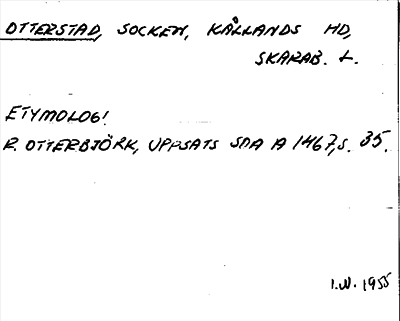 OTTERSTAD, SOCKEN, KÅLLANDS HD,
SKARAB. L.
ETYMOLOGI
R. OTTERBJÖRK, UPPSATS SOA A 1467, S. 35.
I.W. 1955